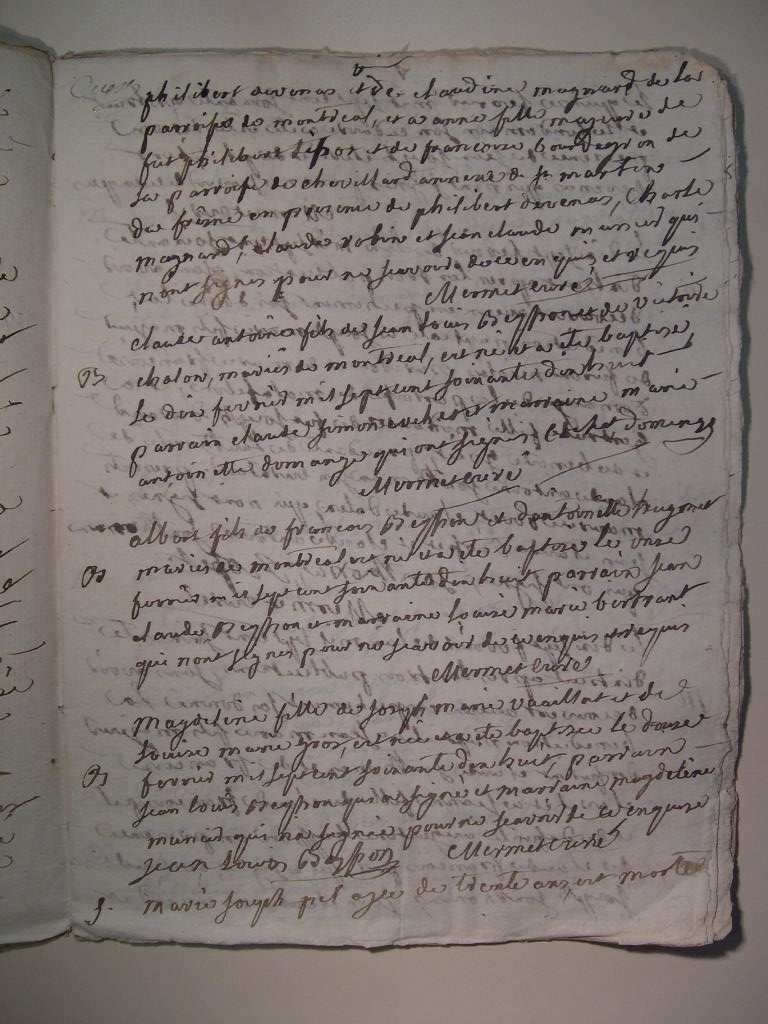 philibert devenas et de claudine magnard de la
parroisse de montreal, et a anne fille mageure de
fut philibert et de francoise de
la parroisse de chevillard annexe de st martin
du frêne en presence de philibert devenas, Charle
magnard, claude robin et jean claude qui
nont signes pour ne scavoir de ce enquis et requis
Mermet curé
claude antoine fils de jean louis Beysson et de
chalon, mariés de montreal, est né et a ete baptisé
B le dix fevrier mil sept cent soixante dix huit
parrain claude simon et marraine marie
antoinette domange qui ont signés domange
Mermet curé
albert fils de francois Beysson et dantoinette hugonet
mariés de montreal est ne et a ete baptisé le onze
B fevrier mil sept cent soixante dix huit parrain jean
claude Beysson et marraine louise marie bertrant
qui nont signes pour ne scavoir de ce enquis et requis
Mermet curé
Magdelene fille de joseph marie vaillat et de
louise marie gros, est née et a ete baptisée le douze
B fevrier mil sept cent soixante dix huit, parrain
jean louis Beysson qui a signé et marraine magdelene
qui na signée pour ne scavoir de ce enquise
jean louis Beysson Mermet curé
S. marie joseph agee de trente ans, est morte